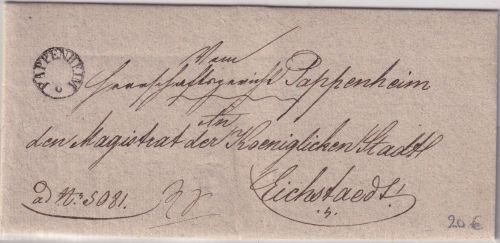 PAPPENHEIM
Vom
Herrschaftsgericht Pappenheim
An
den Magistrat der Koeniglichen Stadt
Eichstaedt.
ad Nr. 5081.
20 €